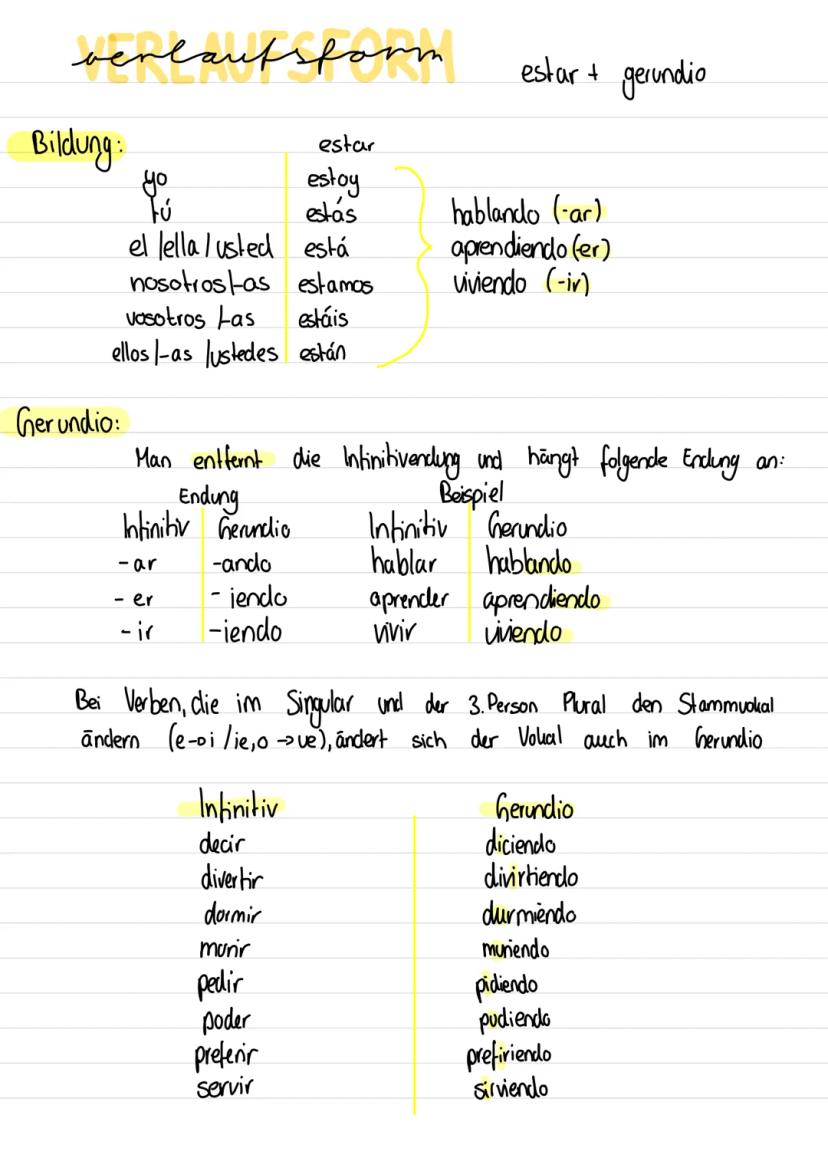 VERLAUFSFORM
verlaufsform
estar + gerundio
Bildung: estar
yo estoy
tú estás hablando (-ar)
el /ella / usted está aprendiendo (er)
nosotros/-as estamos viviendo (-ir)
vosotros /-as estáis
ellos /-as /ustedes están
Gerundio:
Man entfernt die Infinitivendung und hängt folgende Endung an:
Endung Beispiel
Infinitiv Gerundio Infinitiv Gerundio
-ar -ando hablar hablando
- er - iendo aprender aprendiendo
- ir -iendo vivir viviendo
Bei Verben, die im Singular und der 3. Person Plural den Stammvokal
ändern (e→i /ie, o →ue), ändert sich der Vokal auch im Gerundio
Infinitiv Gerundio
decir diciendo
divertir divirtiendo
dormir durmièndo
morir muriendo
pedir pidiendo
poder pudiendo
preferir prefiriendo
servir sirviendo